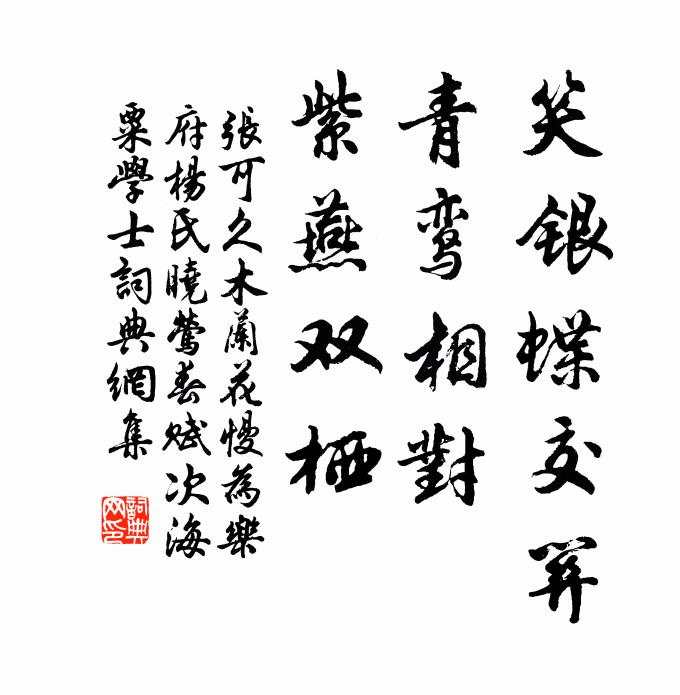 笑銀蝶交笄
青鸾相對
紫燕双栖
張可久木蘭花慢為樂
府楊氏曉鶯春賦次海
粟學士詞典網集
詞典
网印